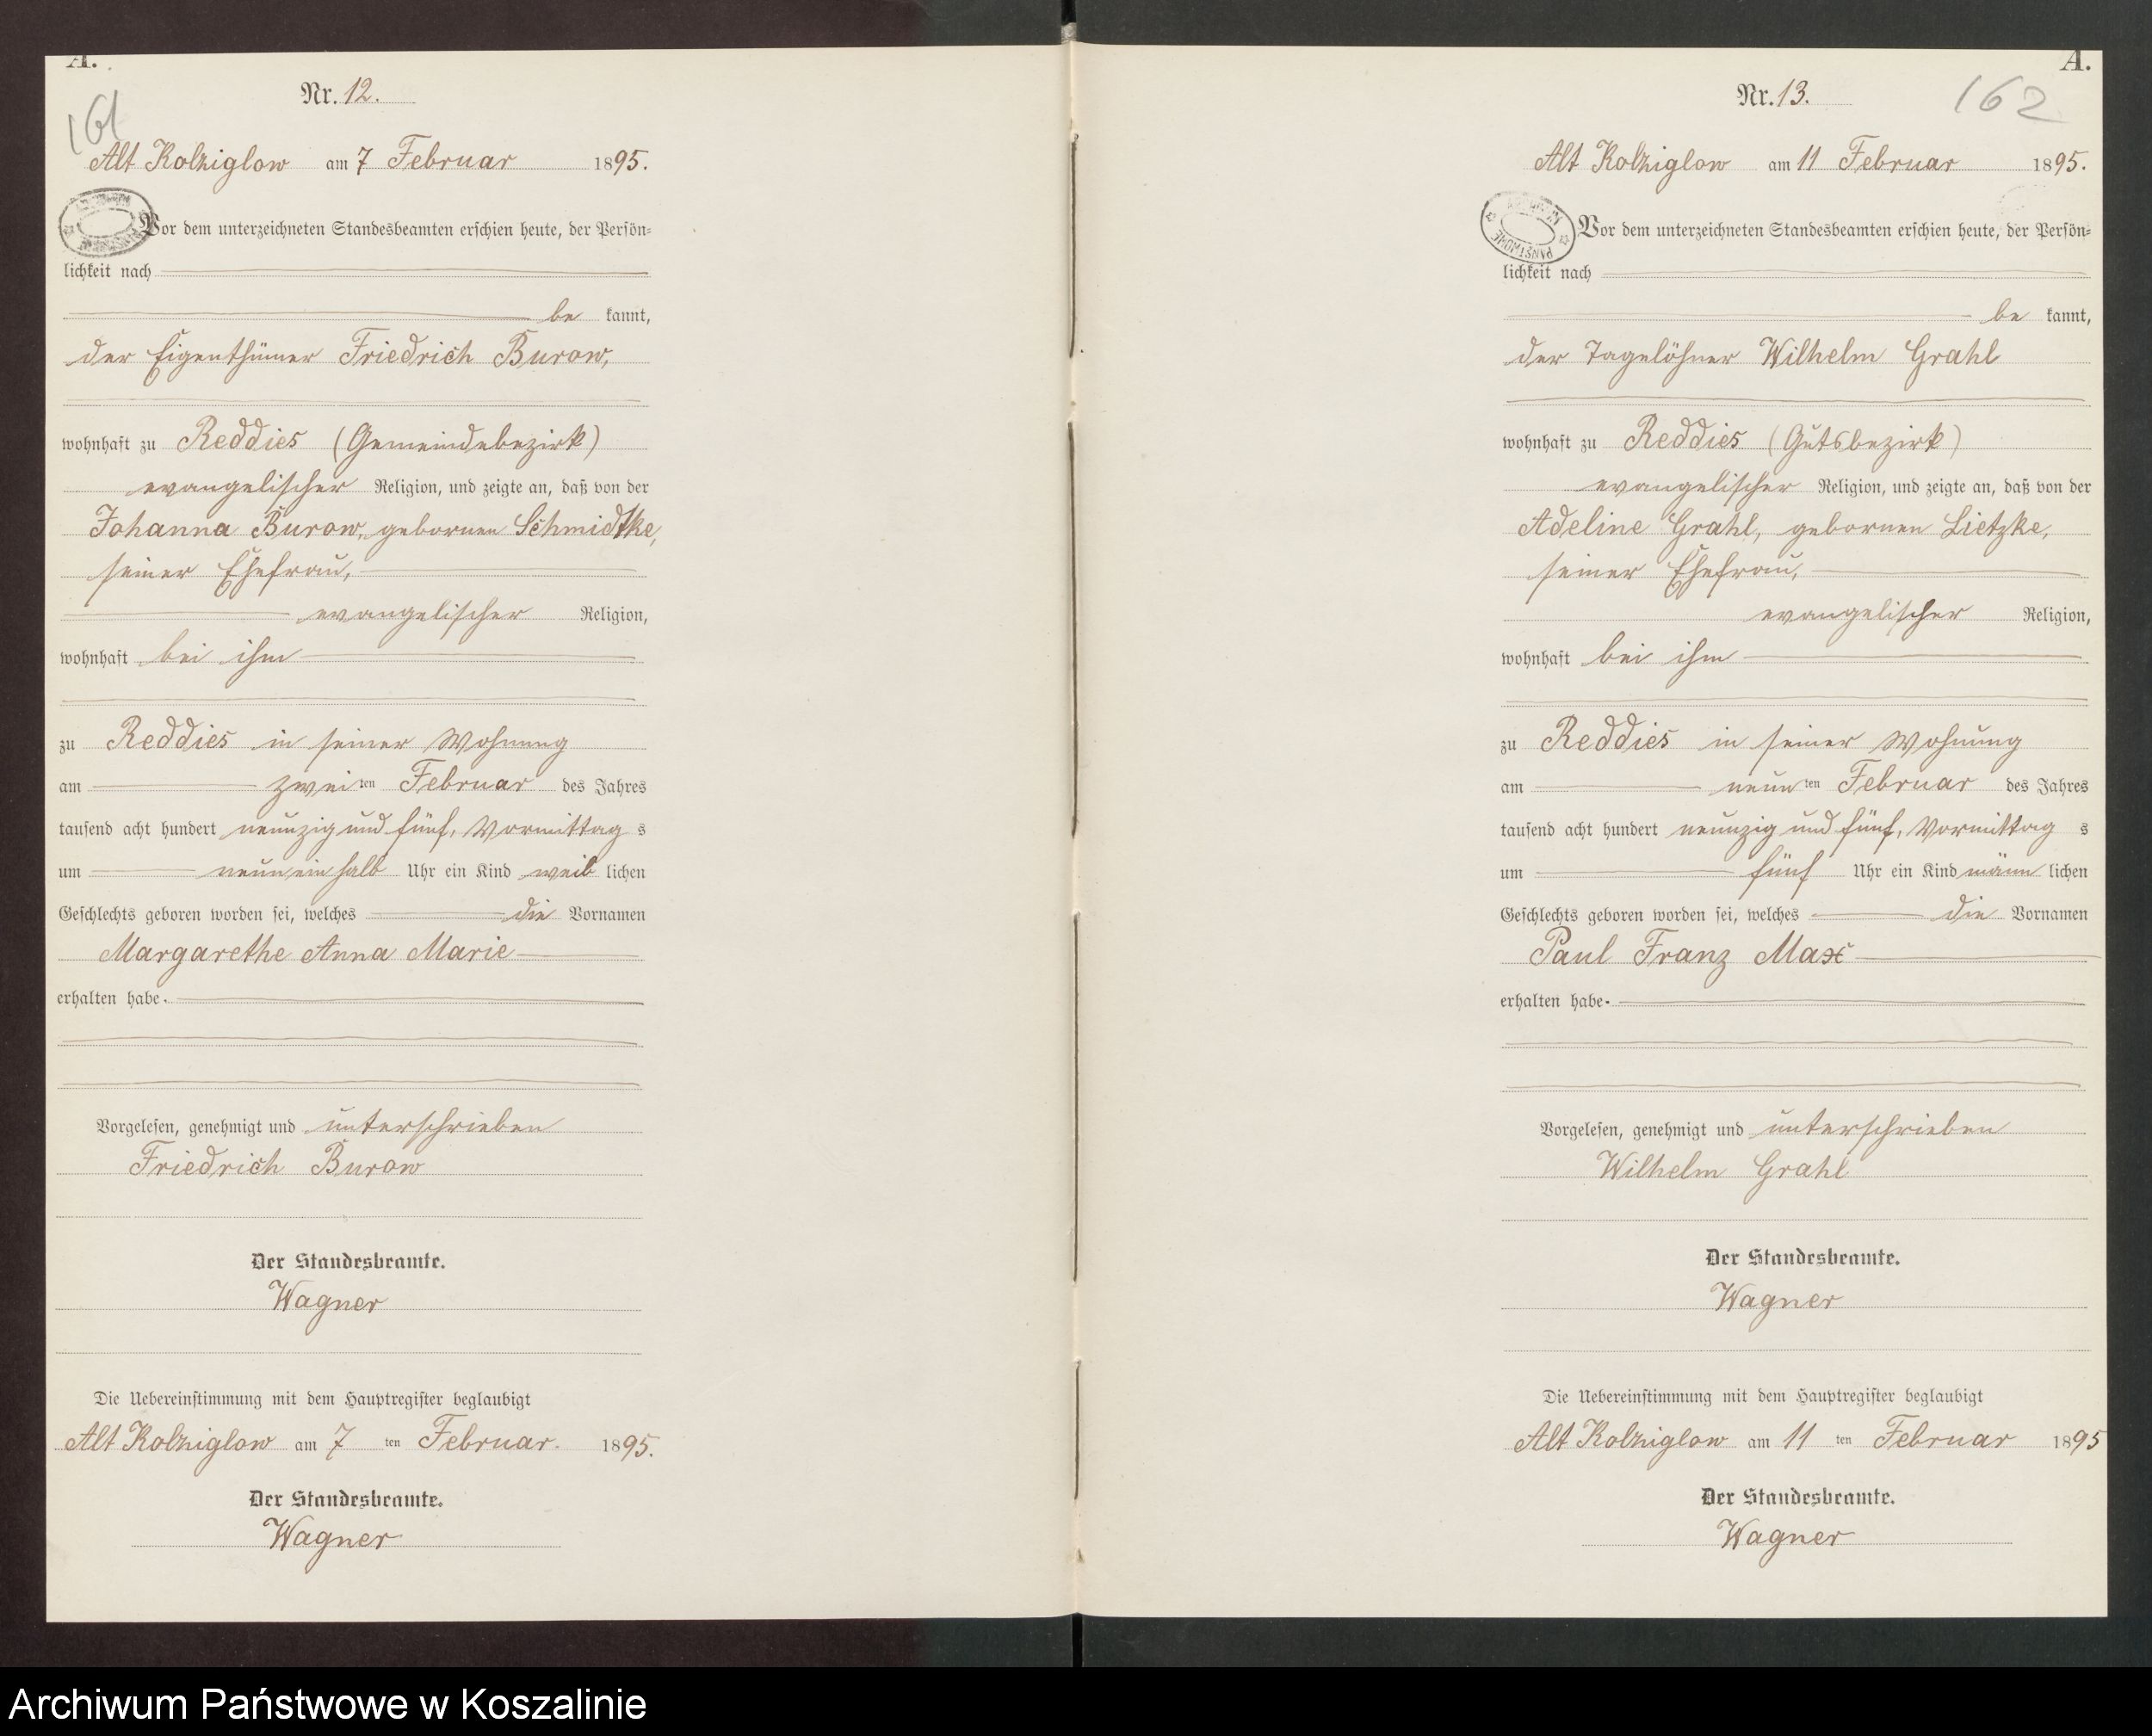 A.
Nr. 12.
161
Alt Kolziglow am 7 Februar 1895.
Vor dem unterzeichneten Standesbeamten erschien heute, der Persön=
lichkeit nach
be kannt,
der Eigenthümer Friedrich Burow,
wohnhaft zu Reddies (Gemeindebezirk)
evangelischer Religion, und zeigte an, daß von der
Johanna Burow, gebornen Schmidtke,
seiner Ehefrau,
evangelischer Religion,
wohnhaft bei ihm
zu Reddies in seiner Wohnung
am zwei ten Februar des Jahres
tausend acht hundert neunzig und fünf, Vormittag s
um neun ein halb Uhr ein Kind weib lichen
Geschlechts geboren worden sei, welches die Vornamen
Margarethe Anna Marie
erhalten habe.
Vorgelesen, genehmigt und unterschrieben
Friedrich Burow
Der Standesbeamte.
Wagner
Die Uebereinstimmung mit dem Hauptregister beglaubigt
Alt Kolziglow am 7 ten Februar. 1895.
Der Standesbeamte.
Wagner
A.
Nr. 13.
162
Alt Kolziglow am 11 Februar 1895.
Vor dem unterzeichneten Standesbeamten erschien heute, der Persön=
lichkeit nach
be kannt,
der Tagelöhner Wilhelm Grahl
wohnhaft zu Reddies (Gutsbezirk)
evangelischer Religion, und zeigte an, daß von der
Adeline Grahl, gebornen Lietzke,
seiner Ehefrau,
evangelischer Religion,
wohnhaft bei ihm
zu Reddies in seiner Wohnung
am neun ten Februar des Jahres
tausend acht hundert neunzig und fünf, Vormittag s
um fünf Uhr ein Kind männ lichen
Geschlechts geboren worden sei, welches die Vornamen
Paul Franz Max
erhalten habe.
Vorgelesen, genehmigt und unterschrieben
Wilhelm Grahl
Der Standesbeamte.
Wagner
Die Uebereinstimmung mit dem Hauptregister beglaubigt
Alt Kolziglow am 11 ten Februar 1895
Der Standesbeamte.
Wagner
Archiwum Państwowe w Koszalinie